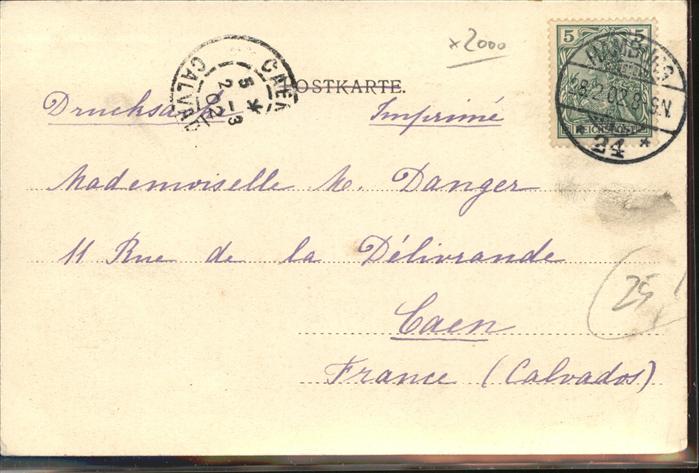 x2000
5 5
REICHSPOST
HAMBURG
8.2.02.8-9N.
24 *
CAEN
5 *
2 - 3
02
CALVADOS
POSTKARTE.
Drucksache Imprimé
Mademoiselle M. Danger
11 Rue de la Délivrande
Caen
France (Calvados)
25